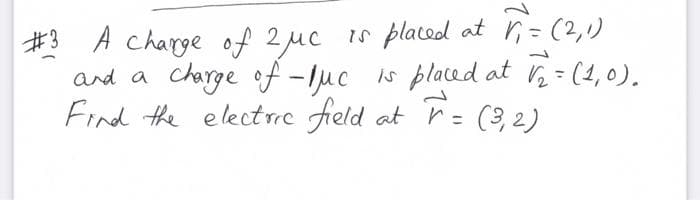 #3 A charge of 2 μc is placed at r⃗₁ = (2,1)
and a charge of -1μc is placed at r⃗₂ = (1,0).
Find the electric field at r⃗ = (3,2)